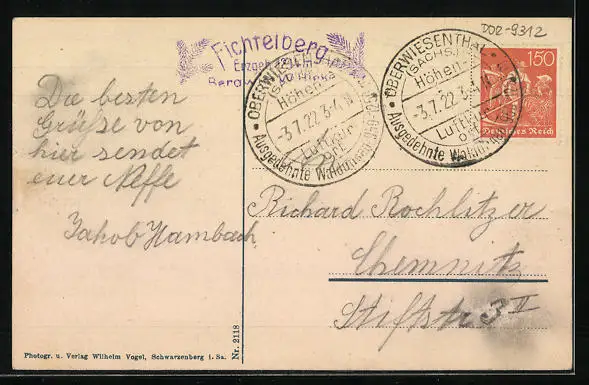 D02-9312
Fichtelberg
Erzgeb. 1214 m
OBERWIESENTHAL
(SACHS.)
Höhen-
-3.7.22.3-4 N
Luftkur
Ort
Ausgedehnte Waldungen
OBERWIESENTHAL
(SACHS.)
Höhen-
-3.7.22.3-4 N
Luftkur
Ort
Ausgedehnte Waldungen
150
Deutsches Reich
Die besten
Grüße von
hier sendet
euer Neffe
Jakob Hambach
Richard Rochlitzer
Chemnitz
Stiftstr 3 II
Photogr. u. Verlag Wilhelm Vogel, Schwarzenberg i. Sa.
Nr. 2118